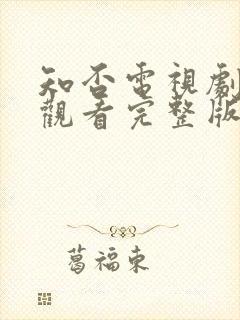 知否電視劇
觀看完整版
葛福東